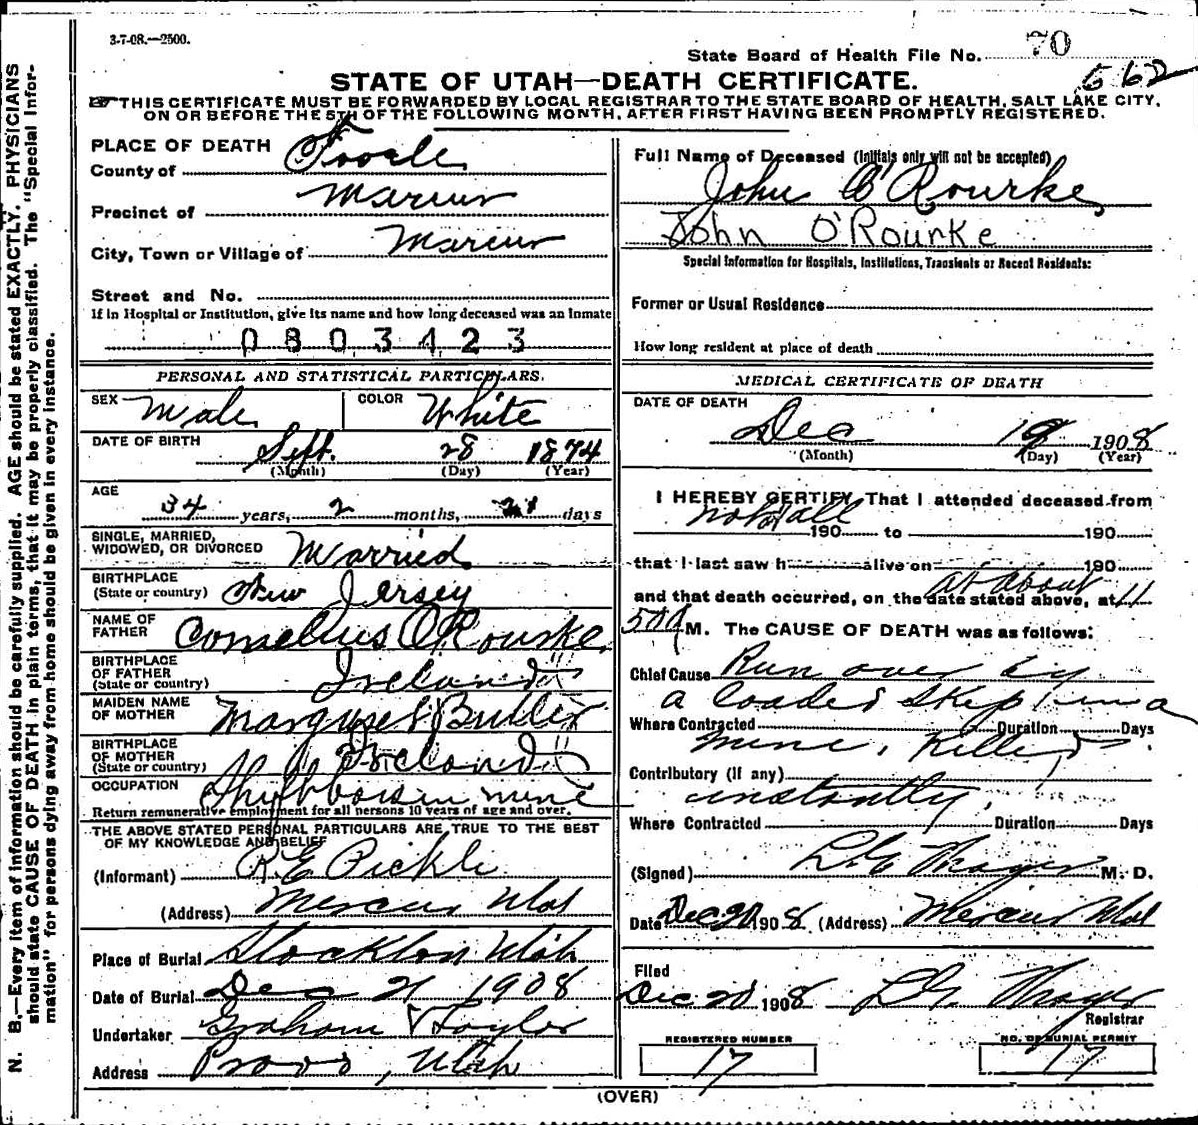 3-7-08.—2500.
State Board of Health File No. 70
562
STATE OF UTAH—DEATH CERTIFICATE.
THIS CERTIFICATE MUST BE FORWARDED BY LOCAL REGISTRAR TO THE STATE BOARD OF HEALTH, SALT LAKE CITY,
ON OR BEFORE THE 5TH OF THE FOLLOWING MONTH, AFTER FIRST HAVING BEEN PROMPTLY REGISTERED.
N. B.—Every item of information should be carefully supplied. AGE should be stated EXACTLY. PHYSICIANS
should state CAUSE OF DEATH in plain terms, that it may be properly classified. The "Special Infor-
mation" for persons dying away from home should be given in every instance.
PLACE OF DEATH
County of Tooele
Precinct of Mercur
City, Town or Village of Mercur
Street and No.
If in Hospital or Institution, give its name and how long deceased was an Inmate
0803423
PERSONAL AND STATISTICAL PARTICULARS.
SEX Male COLOR White
DATE OF BIRTH
Sept. 28 1874
(Month) (Day) (Year)
AGE
34 years, 2 months, 21 days
SINGLE, MARRIED,
WIDOWED, OR DIVORCED Married
BIRTHPLACE
(State or country) New Jersey
NAME OF
FATHER Cornelius O'Rourke
BIRTHPLACE
OF FATHER
(State or country) Ireland
MAIDEN NAME
OF MOTHER Margaret Butler
BIRTHPLACE
OF MOTHER
(State or country) Ireland
OCCUPATION in mine
Return remunerative employment for all persons 10 years of age and over.
THE ABOVE STATED PERSONAL PARTICULARS ARE TRUE TO THE BEST
OF MY KNOWLEDGE AND BELIEF
(Informant) R. E. Pickle
(Address) Mercur Utah
Place of Burial Stockton Utah
Date of Burial Dec 21 1908
Undertaker Graham & Taylor
Address Provo, Utah
Full Name of Deceased (Initials only will not be accepted)
John O'Rourke
John O'Rourke
Special Information for Hospitals, Institutions, Transients or Recent Residents:
Former or Usual Residence
How long resident at place of death
MEDICAL CERTIFICATE OF DEATH
DATE OF DEATH
Dec 1908
(Month) (Day) (Year)
I HEREBY CERTIFY, That I attended deceased from
not at all 190 to 190
that I last saw h alive on 190
and that death occurred, on the date stated above, at at about 11
50 A M. The CAUSE OF DEATH was as follows:
Chief Cause Run over by
a loaded skip in a
Where Contracted Duration Days
mine. Killed
Contributory (if any)
instantly.
Where Contracted Duration Days
(Signed) M. D.
Date Dec 20 1908 (Address) Mercur Utah
Filed
Dec 20 1908
Registrar
REGISTERED NUMBER
17
NO. OF BURIAL PERMIT
17
(OVER)